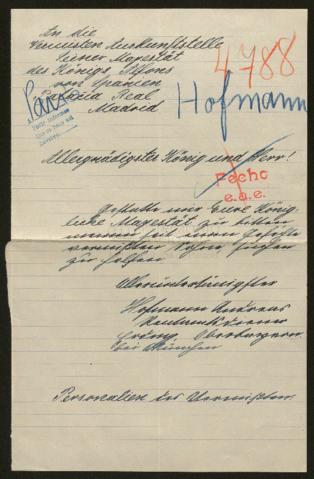 An die
Vermissten Auskunftstelle
Seiner Majestät
des Königs Alfons
von Spanien
Palacio Real
Madrid
4788
Hofmann
Paris
Allergnädigster König und Herr!
Fecho
e.a.e.
Gestatte mir Eure König-
liche Majestät zu bitten
meinen seit
vermissten Sohn suchen
zu helfen
Alleruntertänigster
Hofmann Andreas
Rentamtsdiener
Oberbayern
bei München
Personalien des Vermissten